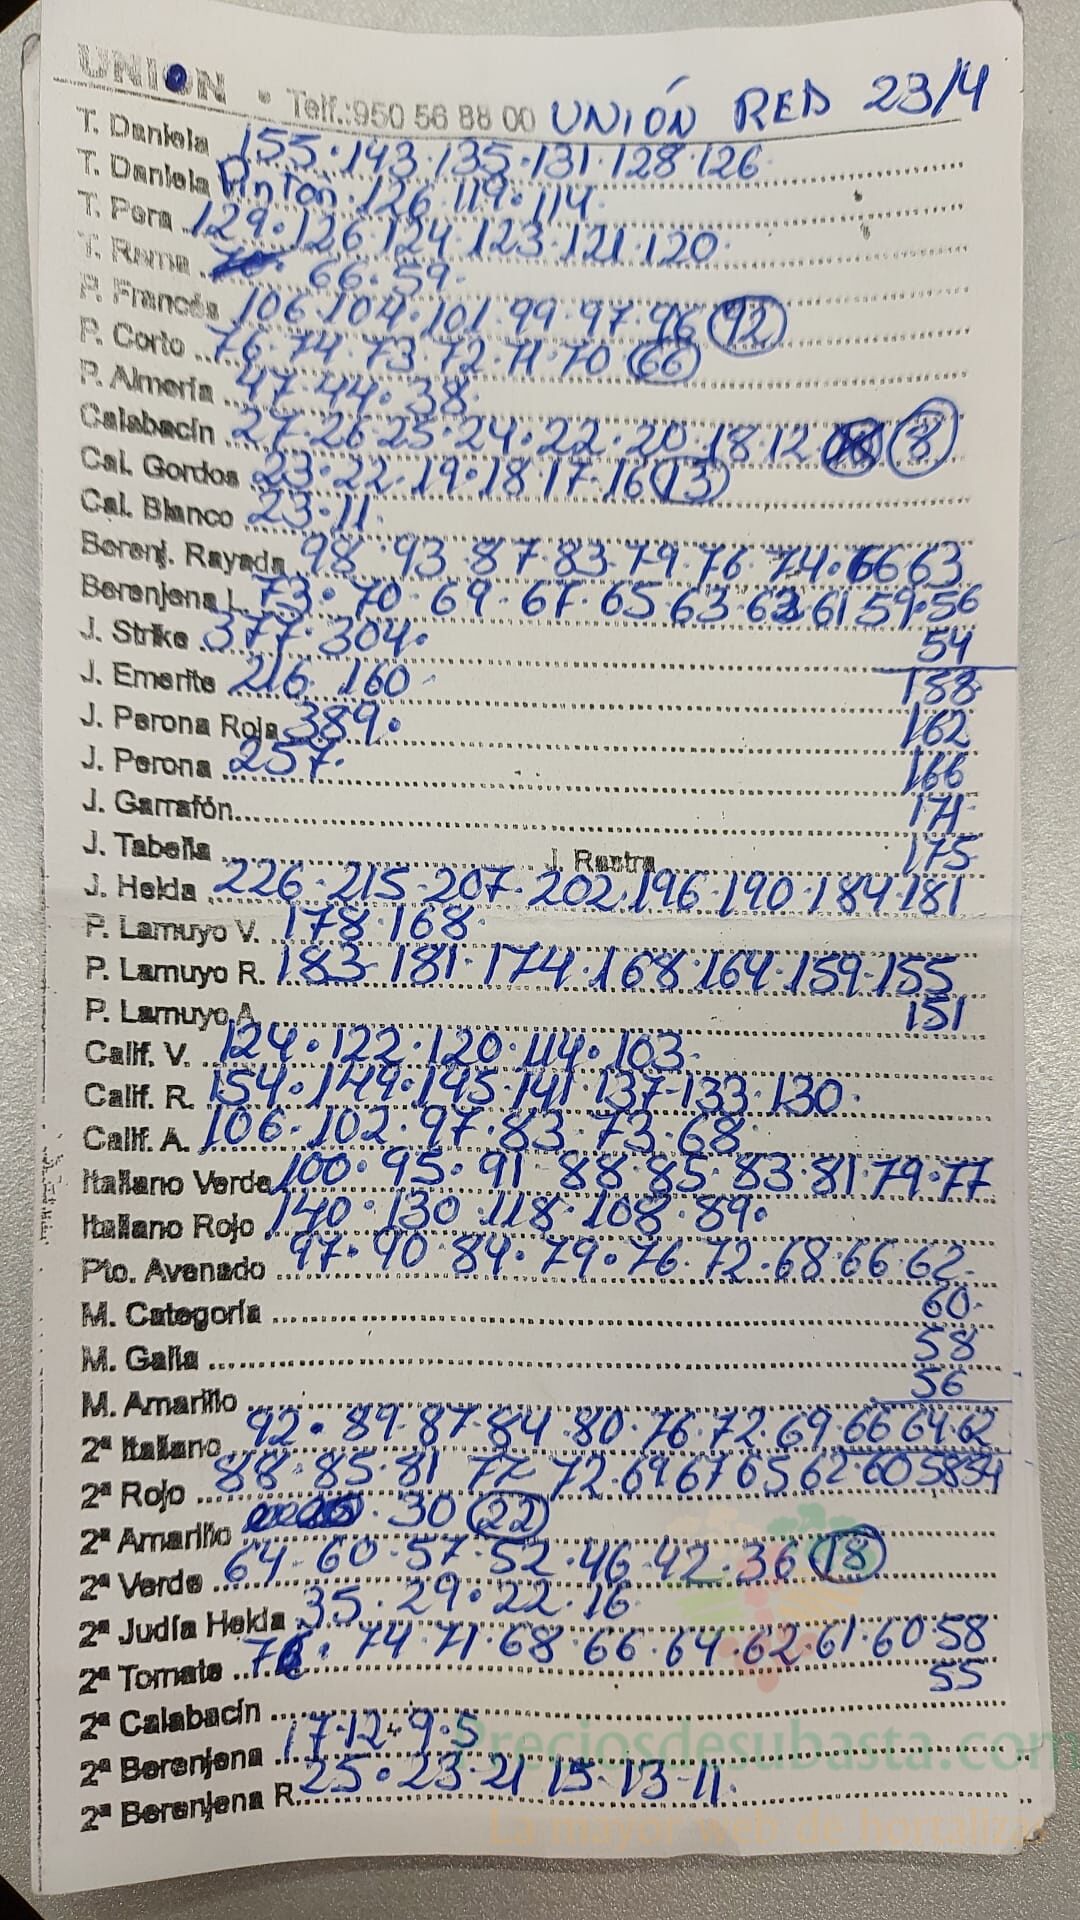 UNION • Telf.:950 56 88 00 UNIÓN RED 23/4
T. Daniela 155·143·135·131·128·126
T. Daniela Pinton·126·119·114
T. Pera 129·126·124·123·121·120
T. Rama 66·59
P. Francés 106·104·101·99·97·96 92
P. Corto 76·74·73·72·71·70 66
P. Almería 47·44·38
Calabacín 27·26·25·24·22·20·18·12 8
Cal. Gordos 23·22·19·18·17·16 13
Cal. Blanco 23·11
Berenj. Rayada 98·93·87·83·79·76·74·66 63
Berenjena L. 73·70·69·67·65·63·62·61 59·56
54
J. Strike 377·304
J. Emerite 216·160 158
J. Perona Roja 389 162
J. Perona 257 166
J. Garrafón 171
J. Tabeña J. Rastra 175
J. Helda 226·215·207·202·196·190·184·181
P. Lamuyo V. 178·168
P. Lamuyo R. 183·181·174·168·164·159·155
P. Lamuyo A 151
Calif. V. 124·122·120·114·103
Calif. R. 154·149·145·141·137·133·130
Calif. A. 106·102·97·83·73·68
Italiano Verde 100·95·91·88·85·83·81·79·77
Italiano Rojo 140·130·118·108·89
Pto. Avenado 97·90·84·79·76·72·68·66·62
M. Categoría 60
M. Galia 58
M. Amarillo 56
2ª Italiano 92·89·87·84·80·76·72·69·66 64·62
2ª Rojo 88·85·81 77·72·69 67 65 62·60 58 54
2ª Amarillo 30 22
2ª Verde 64·60·57·52·46·42·36 18
2ª Judía Helda 35·29·22·16
2ª Tomate 76·74·71·68·66·64·62·61·60·58
55
2ª Calabacín
2ª Berenjena 17·12·9·5
2ª Berenjena R. 25·23·21 15·13·11
Preciosdesubasta.com
La mayor web de hortalizas